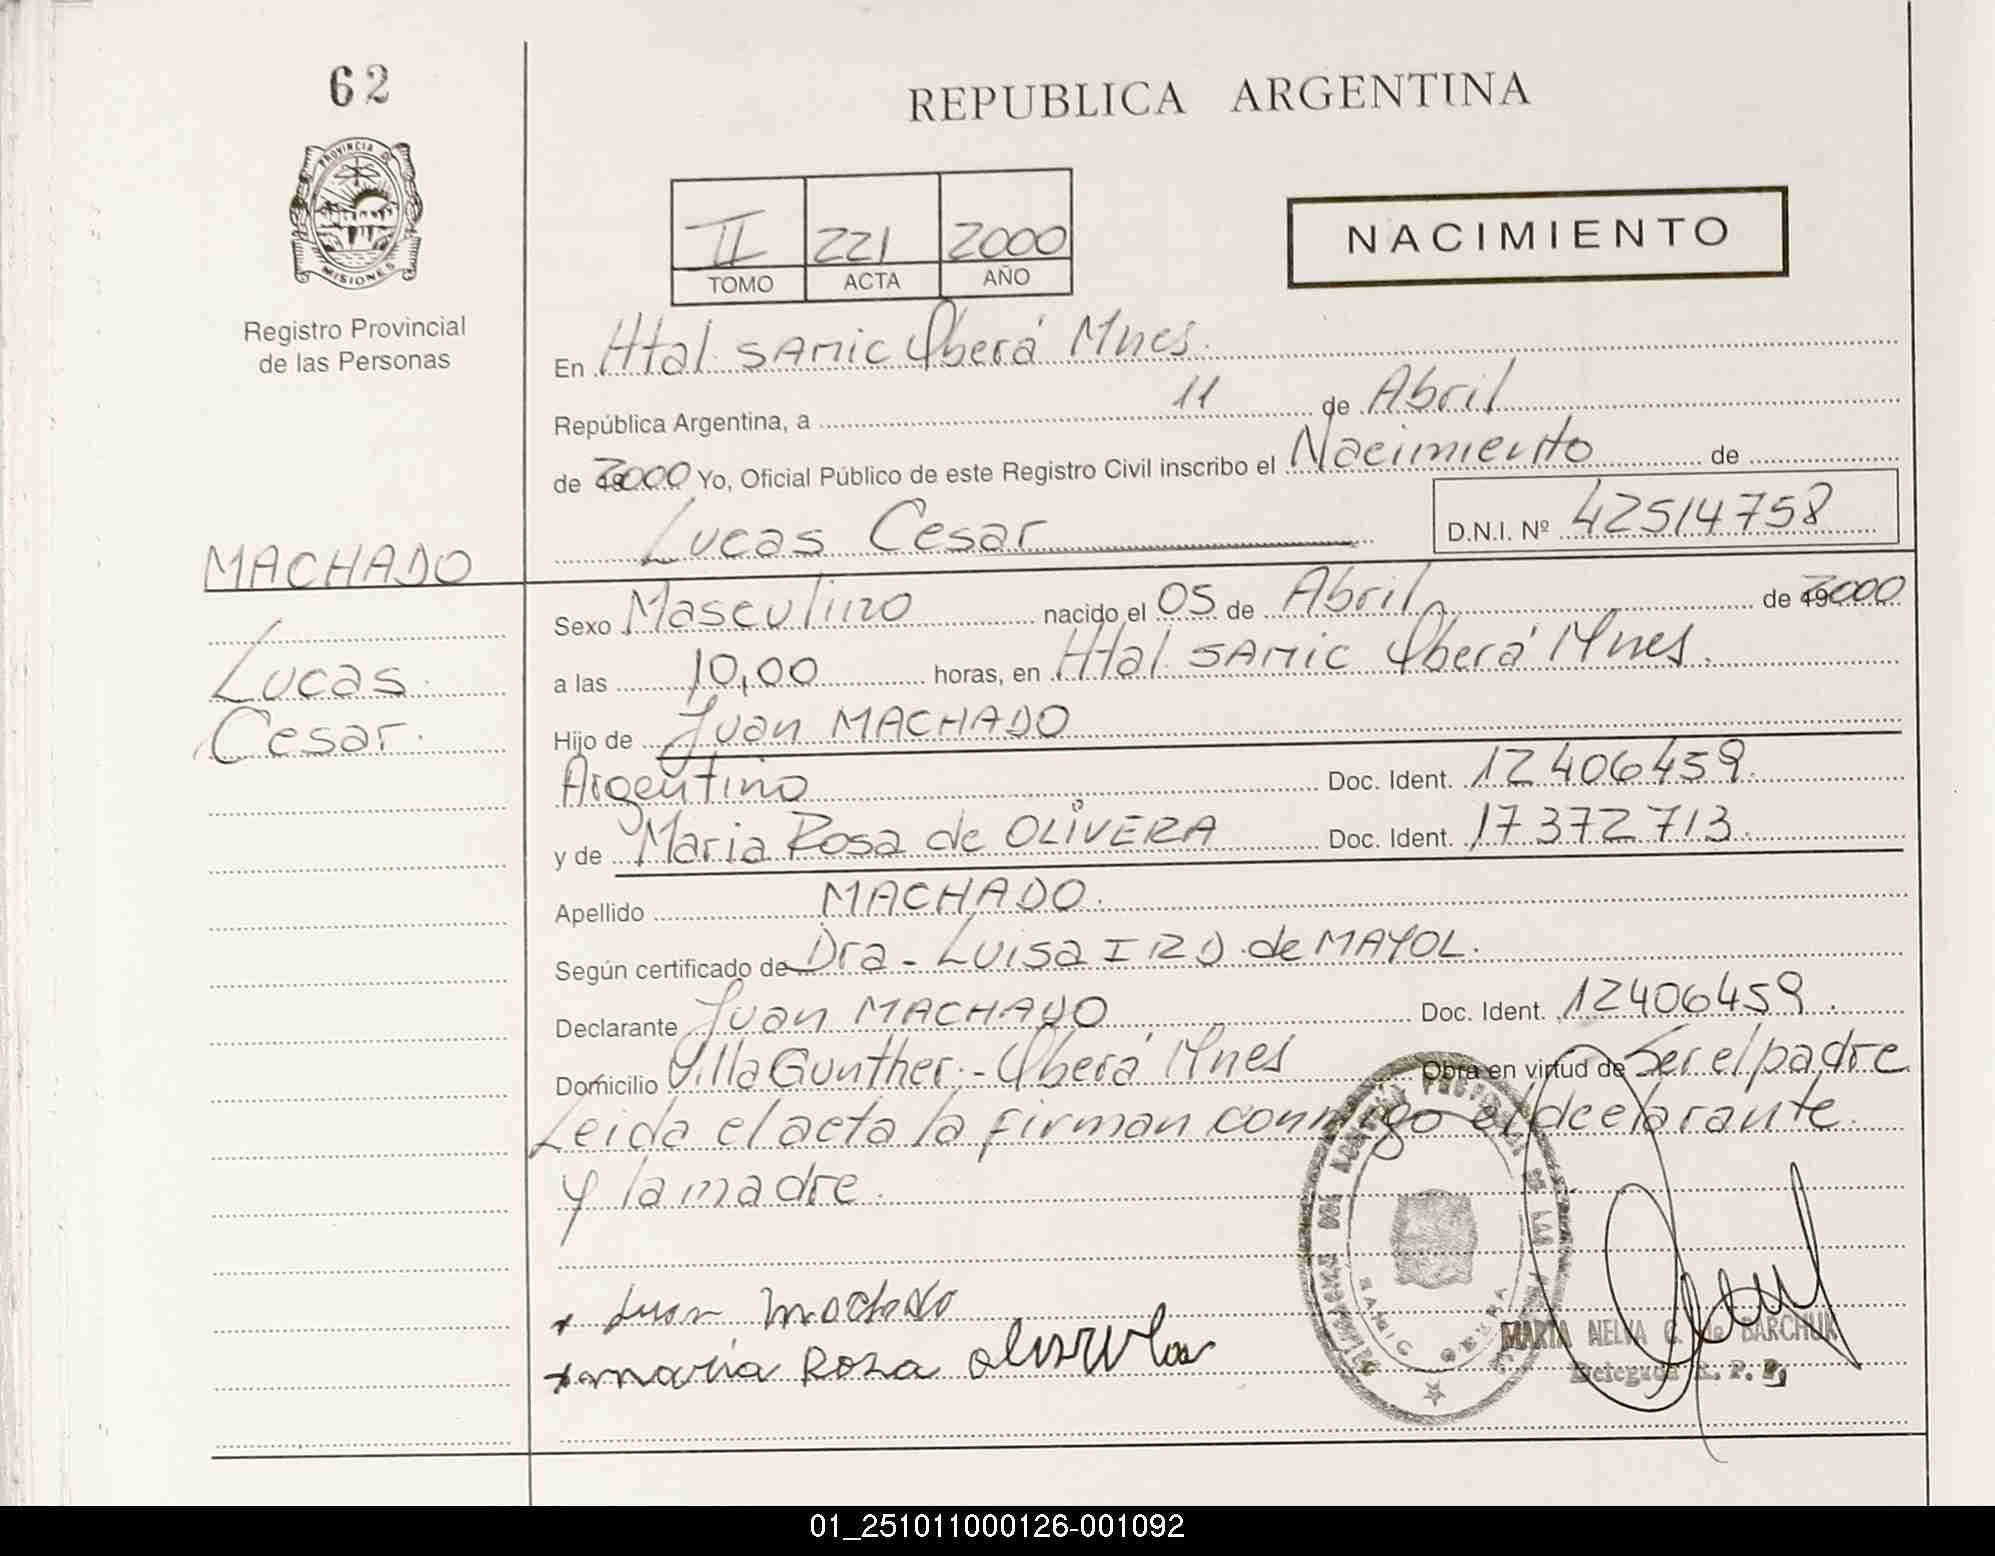 62
PROVINCIA DE
MISIONES
Registro Provincial
de las Personas
MACHADO
Lucas
Cesar.
REPUBLICA ARGENTINA
II 221 2000
TOMO ACTA AÑO
NACIMIENTO
En Htal. SAMIC Oberá Mnes.
República Argentina, a 11 de Abril
de 2000 Yo, Oficial Público de este Registro Civil inscribo el Nacimiento de
Lucas Cesar D.N.I. Nº 42514758
Sexo Masculino nacido el 05 de Abril de 2000
a las 10,00 horas, en Htal. SAMIC Oberá Mnes.
Hijo de Juan MACHADO
Argentino Doc. Ident. 12406459.
y de Maria Rosa de OLIVERA Doc. Ident. 17372713.
Apellido MACHADO.
Según certificado de Dra - Luisa I R D. de MAYOL.
Declarante Juan MACHADO Doc. Ident. 12406459.
Domicilio Villa Gunther.- Oberá Mnes Obra en virtud de Ser el padre
Leida el acta la firman conmigo el declarante
y la madre.
Juan Machado
maria Roza
SAMIC OBERA
MARIA NELVA C. de BARCHUK
Delegada R. P. P.
01_251011000126-001092